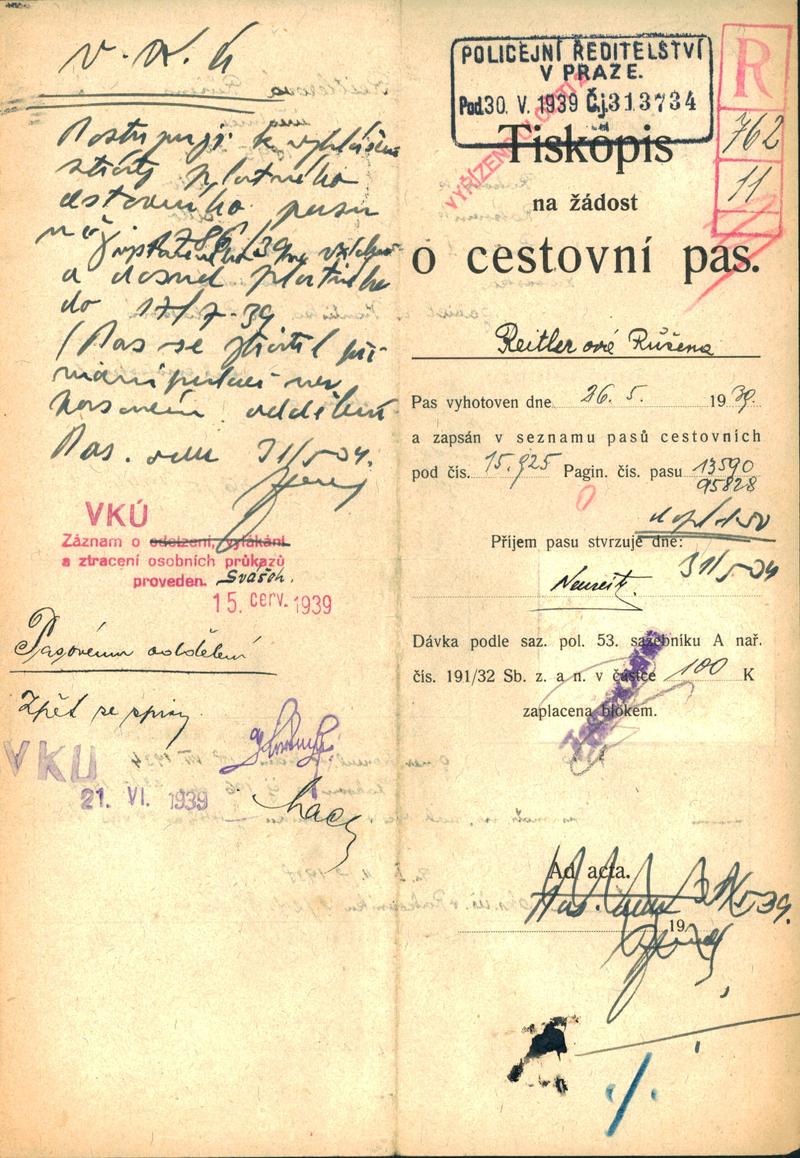 V. K. ú
Postupuji k vyhlášení
ztráty platného
cestovního pasu
a dosud platného
do 17/7-39
(Pas se ztratil při
manipulaci
oddělení
Pas. odd. 31/5 39.
VKÚ
Záznam o odcizení, vylákání
a ztracení osobních průkazů
proveden.
15. červ. 1939
Pasovému oddělení
Zpět se spisy
VKU
21. VI. 1939
POLICEJNÍ ŘEDITELSTVÍ
V PRAZE.
Pod. 30. V. 1939 Čj. 313734
R
762
11
VYŘÍZENO
Tiskopis
na žádost
o cestovní pas.
Reitlerové Růžena
Pas vyhotoven dne 26. 5. 1939.
a zapsán v seznamu pasů cestovních
pod čís. 15.925 Pagin. čís. pasu 13590
95828
Příjem pasu stvrzuje dne:
31/5 39
Dávka podle saz. pol. 53. sazebníku A nař.
čís. 191/32 Sb. z. a n. v částce 100 K
zaplacena blokem.
Ad acta.
Pas. odd. 31/5 39.
19